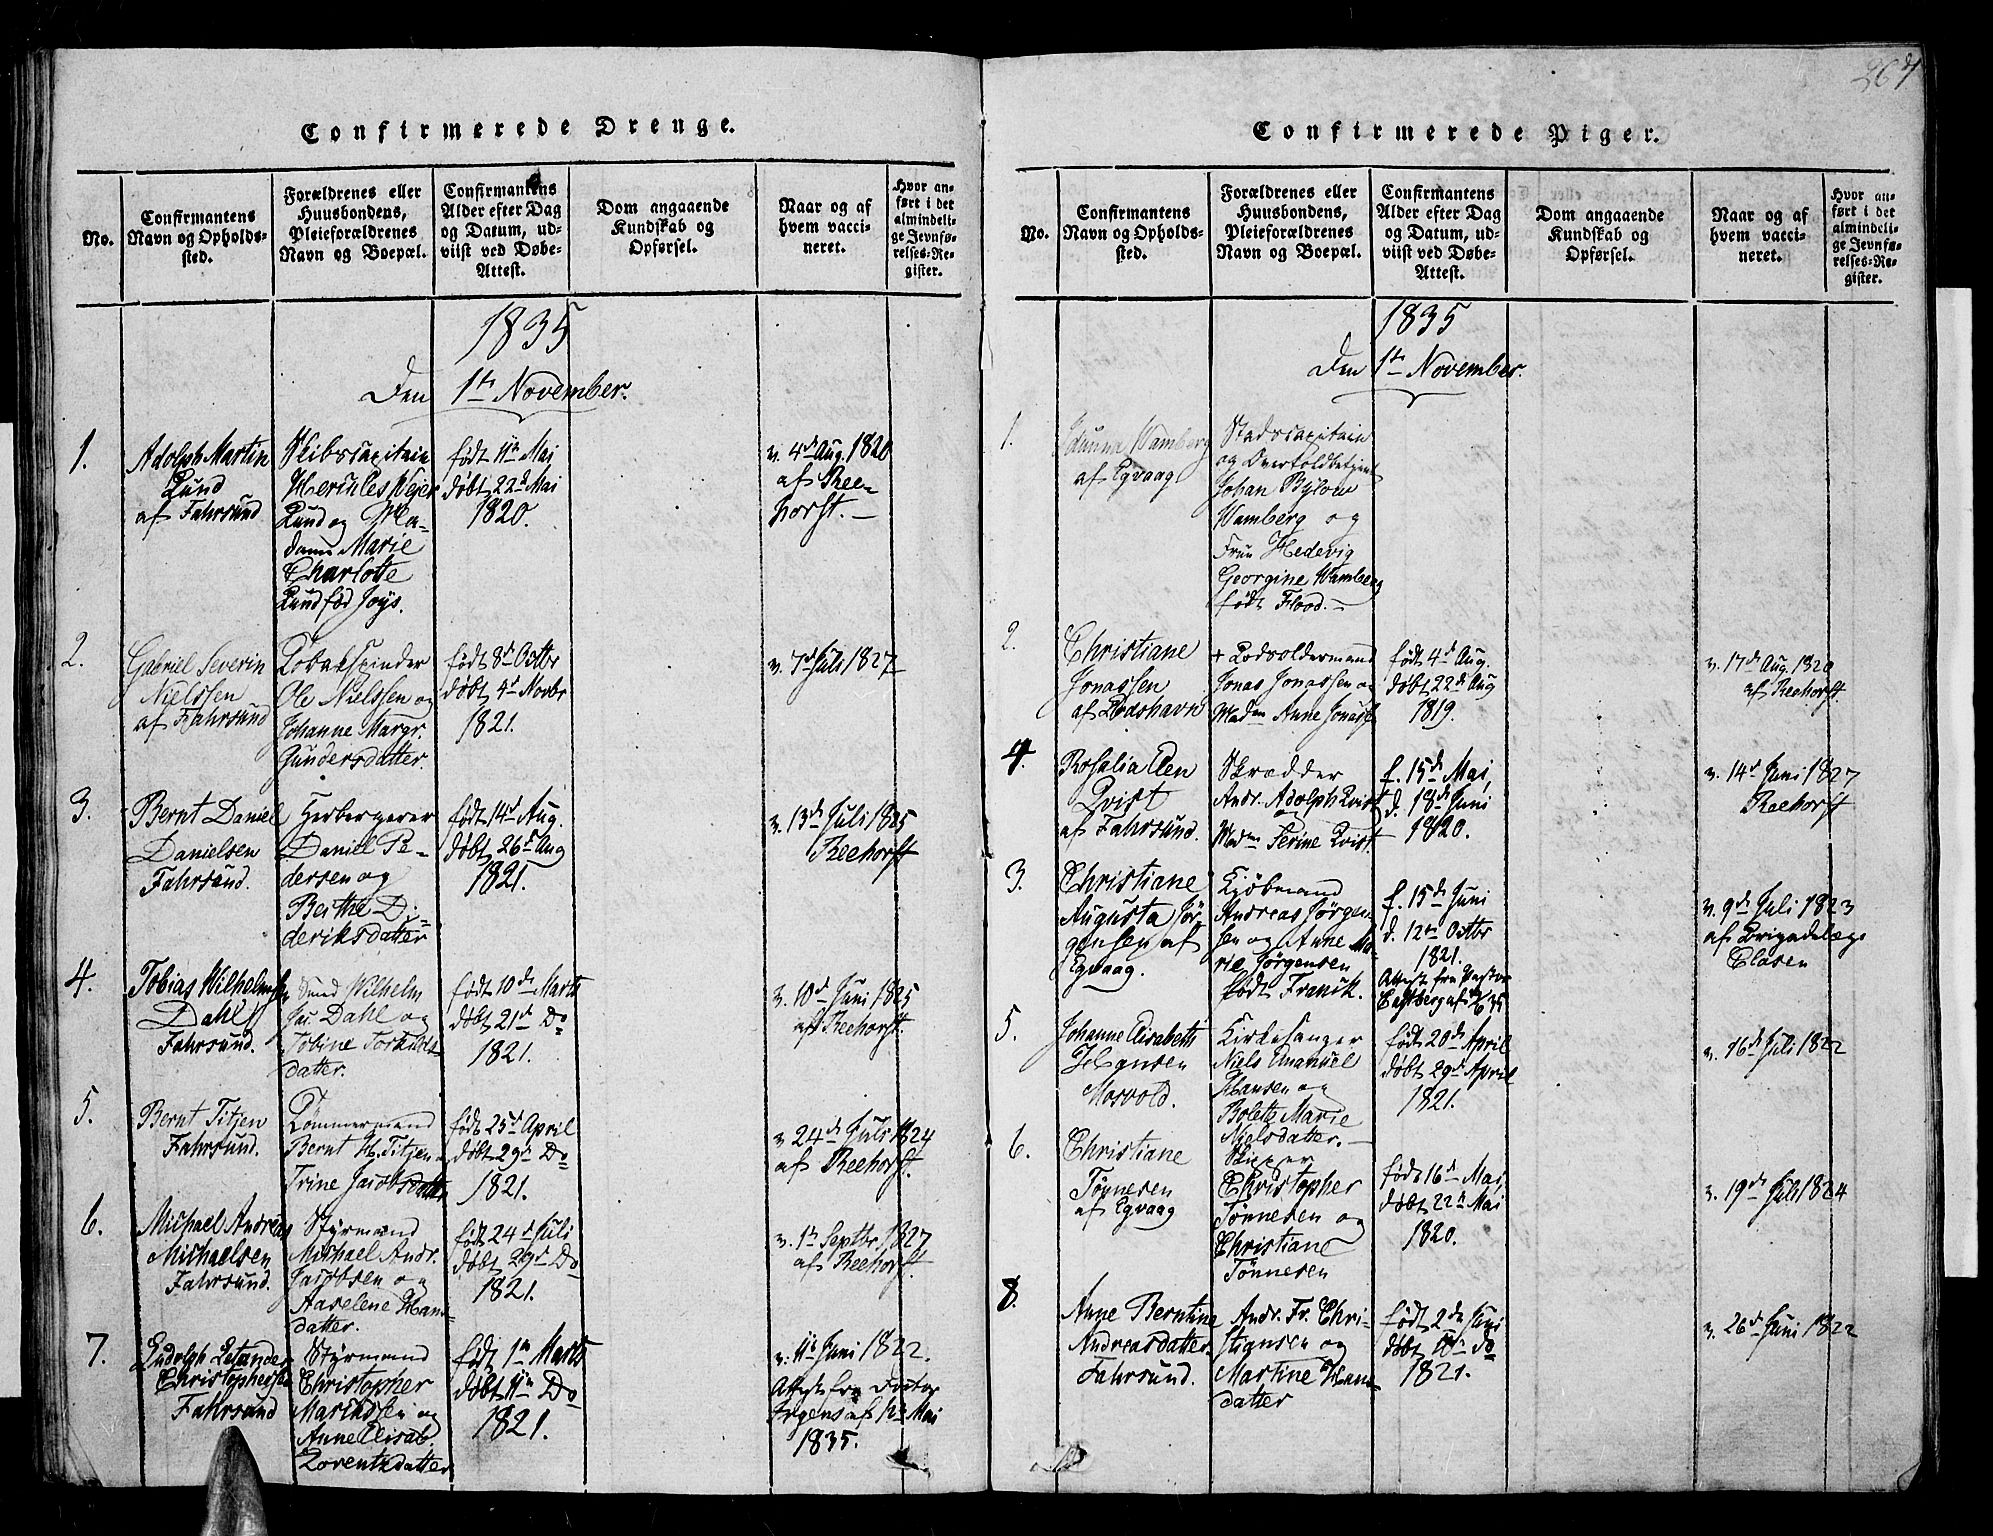 267
Confirmerede Drenge.
No.
Confirmantens
Navn og Opholds-
sted.
Forældrenes eller
Huusbondens,
Pleieforældrenes
Navn og Boepæl.
Confirmantens
Alder efter Dag
og Datum, ud-
viist ved Døbe-
Attest.
Dom angaaende
Kundskab og
Opførsel.
Naar og af
hvem vacci-
neret.
Hvor an-
ført i det
almindeli-
ge Jevnfø-
relses-Re-
gister.
1835
Den 1te November.
1.
Adolph Martin
Lund
af Fahrsund
Skibscapitain
Herkules Weier
Lund og Ma-
dame Marie
Charlotte
Lund fød Joys.
født 11te Mai
døbt 22d Mai
1820.
v. 4de Aug. 1820
af Ree-
horst. —
2.
Gabriel Severin
Nielssen
af Fahrsund
Tobakspinder
Ole Nielssen og
Johanne Margr.
Gundersdatter.
født 8de Octbr
døbt 4de Novbr
1821.
v. 7d Juli 1827
3.
Bernt Daniel
Danielsen
Fahrsund.
Herbergerer
Daniel Pe-
dersen og
Berthe Di-
deriksdatter
født 14d Aug.
døbt 26d Aug
1821.
v. 13de Juli 1825
Reehorst
4.
Tobias Wilhelmsen
Dahl
Fahrsund.
Smed Wilhelm
Jac. Dahl og
Tobine Torkilds
datter.
født 10de Marts
døbt 21d Do
1821.
v. 10d Juni 1825
af Reehorst.
5.
Bernt Titjen
Fahrsund.
Tømmermand
Bernt H. Titjen o
Trine Jacobsdatter
født 25d April
døbt 29d Do
1821.
v. 24de Juli 1824
af Reehorst.
6.
Michael Andreas
Michaelsen
Fahrsund.
Styrmand
Michael Andr.
Jacobsen og
Aaselene Hans
datter.
født 24d Juli
døbt 29d Do
1821.
v. 1te Septbr. 1827
af Reehorst.
7.
Christophersen
Fahrsund
Styrmand
Christopher
og
Anne Elisab.
Lorentzdatter
født 1te Marts
døbt 11te Do
1821.
v. 11te Juni 1822.
Attest fra Doctor
af 12te Mai
1835.
Confirmerede Piger.
No.
Confirmantens
Navn og Opholds-
sted.
Forældrenes eller
Huusbondens,
Pleieforældrenes
Navn og Boepæl.
Confirmantens
Alder efter Dag
og Datum, ud-
viist ved Døbe-
Attest.
Dom angaaende
Kundskab og
Opførsel.
Naar og af
hvem vacci-
neret.
Hvor an-
ført i det
almindeli-
ge Jevnfø-
relses-Re-
gister.
1835
Den 1te November.
1.
Wamberg
af Egvaag
Stadscapitain
og Overtoldbetjent
Johan Bylow
Wamberg og
Frue Hedevig
Georgine Wamberg
født Flood. —
2.
Christiane
Jonassen
af Lodshavn
+ Lodsoldermand
Jonas Jonassen og
Madm Anne Jonass.
født 4d Aug.
døbt 22de Aug
1819.
v. 17de Aug. 1820
af Reehorst.
4.
Rosalia Elen
Qvist
af Fahrsund.
Skrædder
Andr. Adolph Qvist
og
Madm Serine Qvist.
f. 15de Mai,
d. 18de Juni
1820.
v. 14d Juni 1827
Reehorst
3.
Christiane
Augusta Jør-
gensen af
Egvaag.
Kjøbmand
Andreas Jørgen-
sen og Anne Ma-
rie Jørgensen
født Franck.
f. 15de Juni
d. 12te Octbr
1821.
Attest fra Pastor
v. 9de Juli 1823
af Brigadelæge
Clasen
5.
Johanne Elisabeth
Hansen
Mosvold.
Kirkesanger
Niels Emanuel
Hansen og
Bolette Marie
Nielsdatter. —
født 20de April
døbt 29d April
1821.
v. 16de Juli 1822
6.
Christiane
Tønnesen
af Egvaag
Skipper
Christopher
Tønnesen og
Christiane
Tønnesen
født 16d Mai,
døbt 22d Mai
1820.
v. 19de Juli 1824
8.
Anne Berntine
Andreasdatter
Fahrsund.
Andr. Fr. Chri-
stiansen og
Martine Hans-
datter
født 2den Juni
døbt 11te Do
1821.
v. 26d Juni 1822